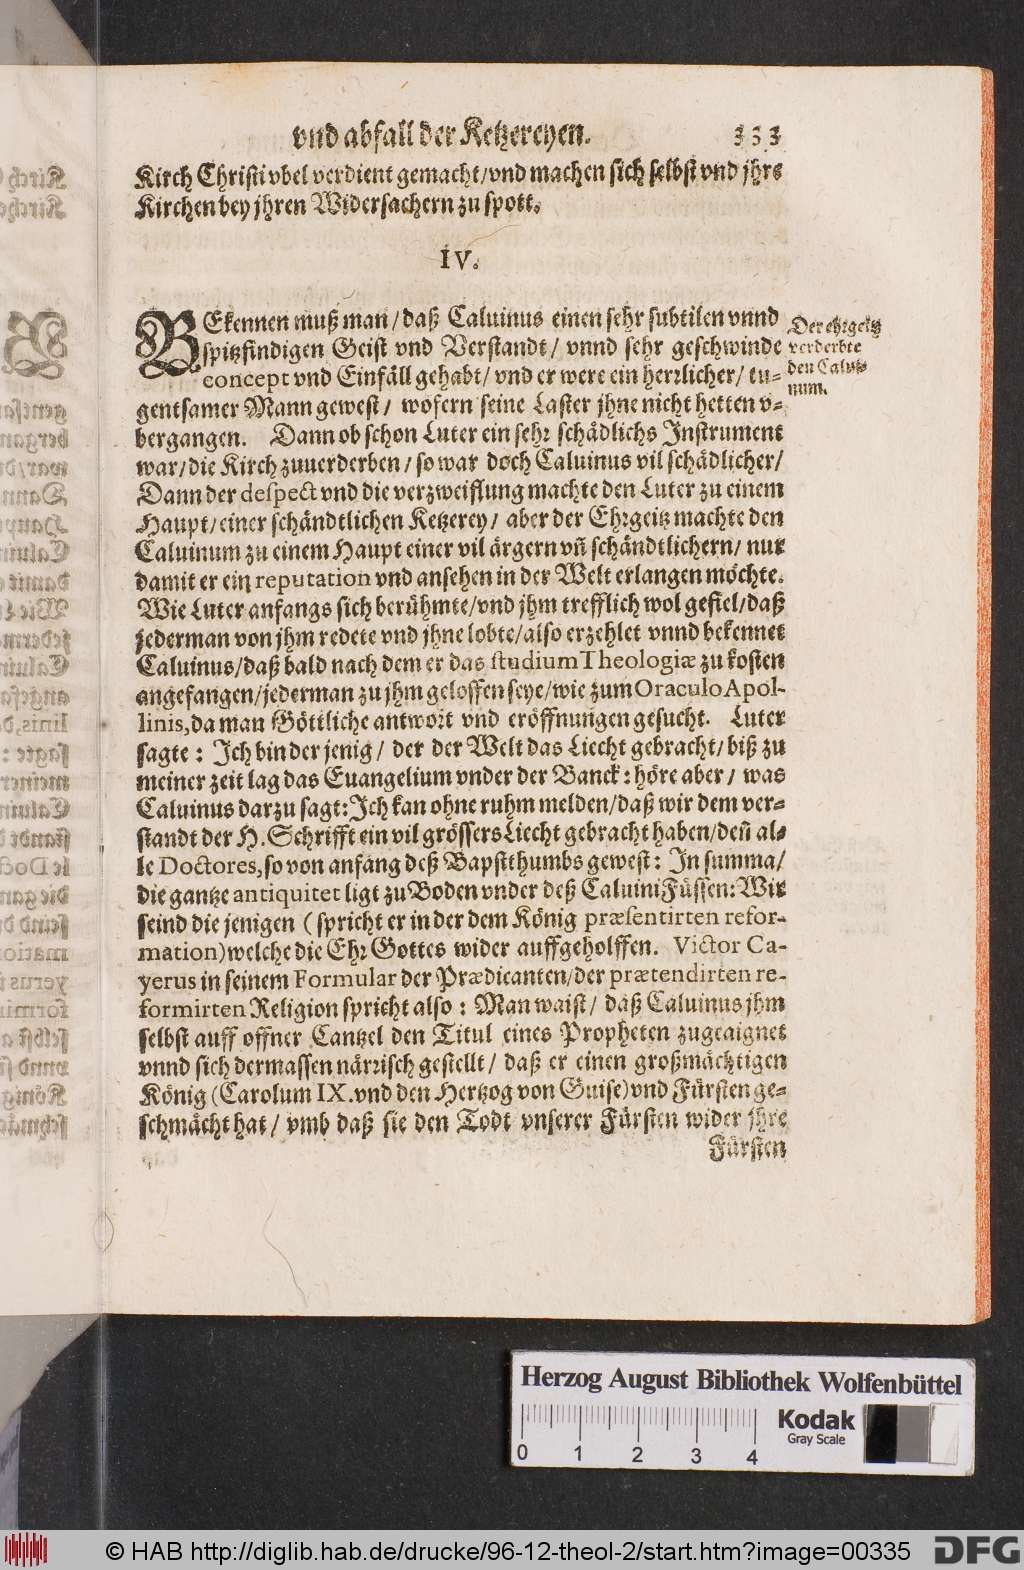 vnd abfall der Ketzereyen. 333
Kirch Christi vbel verdient gemacht/vnd machen sich selbst vnd jhre
Kirchen bey jhren Widersachern zu spott.
IV.
BEkennen muß man/daß Caluinus einen sehr subtilen vnnd
spitzfindigen Geist vnd Verstandt/ vnnd sehr geschwinde
concept vnd Einfäll gehabt/ vnd er were ein herrlicher/ tu-
gentsamer Mann gewest/ wofern seine Laster jhne nicht hetten v-
bergangen. Dann ob schon Luter ein sehr schädlichs Instrument
war/die Kirch zuuerderben/so war doch Caluinus vil schädlicher/
Dann der despect vnd die verzweiflung machte den Luter zu einem
Haupt/einer schändtlichen Ketzerey/ aber der Ehrgeitz machte den
Caluinum zu einem Haupt einer vil ärgern vñ schändtlichern/ nur
damit er ein reputation vnd ansehen in der Welt erlangen möchte.
Wie Luter anfangs sich berühmte/vnd jhm trefflich wol gefiel/daß
jederman von jhm redete vnd jhne lobte/also erzehlet vnnd bekennet
Caluinus/daß bald nach dem er das studium Theologiæ zu kosten
angefangen/jederman zu jhm geloffen seye/wie zum Oraculo Apol-
linis,da man Göttliche antwort vnd eröffnungen gesucht. Luter
sagte: Ich bin der jenig/ der der Welt das Liecht gebracht/biß zu
meiner zeit lag das Euangelium vnder der Banck: höre aber/ was
Caluinus darzu sagt: Ich kan ohne ruhm melden/daß wir dem ver-
standt der H. Schrifft ein vil grössers Liecht gebracht haben/deñ al-
le Doctores,so von anfang deß Bapstthumbs gewest: In summa/
die gantze antiquitet ligt zu Boden vnder deß Caluini Füssen: Wir
seind die jenigen (spricht er in der dem König præsentirten refor-
mation) welche die Ehr Gottes wider auffgeholffen. Victor Ca-
yerus in seinem Formular der Prædicanten/der prætendirten re-
formirten Religion spricht also: Man waist/ daß Caluinus jhm
selbst auff offner Cantzel den Titul eines Propheten zugeaignet
vnnd sich dermassen närrisch gestellt/ daß er einen großmächtigen
König (Carolum IX. vnd den Hertzog von Guise) vnd Fürsten ge-
schmächt hat/ vmb daß sie den Todt vnserer Fürsten wider jhre
Fürsten
Der ehrgeitz
verderbte
den Calui-
num.
Herzog August Bibliothek Wolfenbüttel
0 1 2 3 4
Kodak
Gray Scale
© HAB http://diglib.hab.de/drucke/96-12-theol-2/start.htm?image=00335
DFG